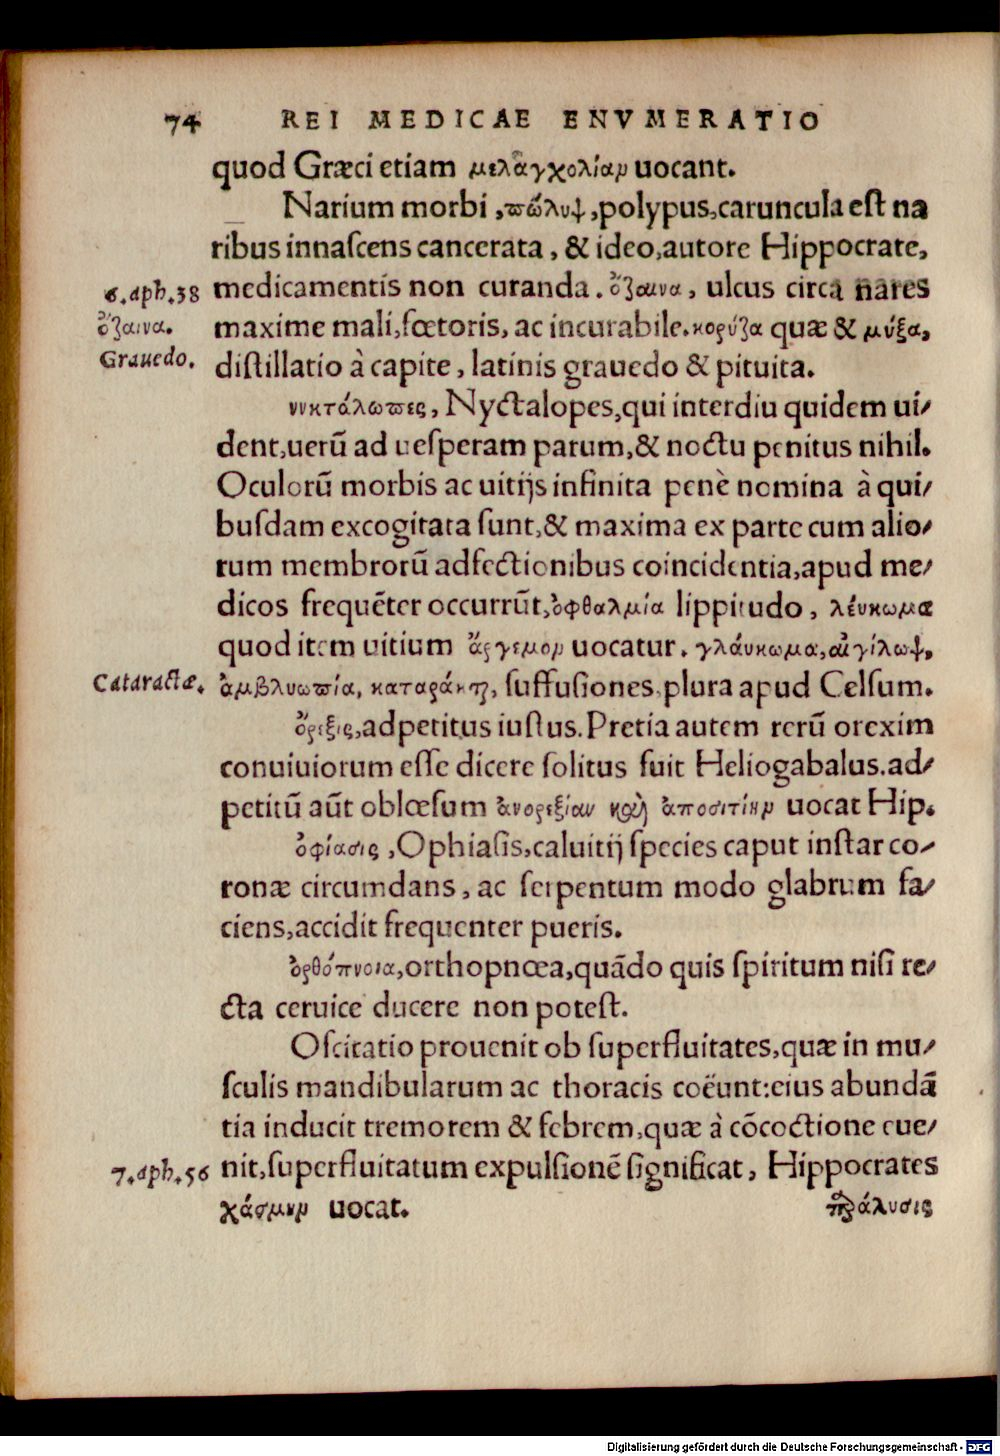 74 REI MEDICAE ENVMERATIO
quod Græci etiam μελαγχολίαν uocant.
Narium morbi, πώλυψ, polypus, caruncula est na
ribus innascens cancerata, & ideo, autore Hippocrate,
6. aph. 38
medicamentis non curanda. ὄζαινα, ulcus circa nares
ὄζαινα.
maxime mali, fœtoris, ac incurabile. κορύζα quæ & μύξα,
Grauedo.
distillatio à capite, latinis grauedo & pituita.
νυκτάλωπες, Nyctalopes, qui interdiu quidem ui⸗
dent, uerũ ad uesperam parum, & noctu penitus nihil.
Oculorũ morbis ac uitijs infinita penè nomina à qui⸗
busdam excogitata sunt, & maxima ex parte cum alio⸗
rum membrorũ adfectionibus coincidentia, apud me⸗
dicos frequẽter occurrũt, ὀφθαλμία lippitudo, λέυκωμα
quod item uitium ἄργεμον uocatur. γλάυκωμα, αἰγίλωψ,
Cataractæ.
ἀμβλυωπία, καταράκτη, suffusiones, plura apud Celsum.
ὄρεξις, adpetitus iustus. Pretia autem rerũ orexim
conuiuiorum esse dicere solitus fuit Heliogabalus. ad⸗
petitũ aũt oblœsum ἀνορεξίαν καὶ ἀποσιτίην uocat Hip.
ὀφίασις, Ophiasis, caluitij species caput instar co⸗
ronæ circumdans, ac serpentum modo glabrum fa⸗
ciens, accidit frequenter pueris.
ὀρθόπνοια, orthopnœa, quãdo quis spiritum nisi re⸗
cta ceruice ducere non potest.
Oscitatio prouenit ob superfluitates, quæ in mu⸗
sculis mandibularum ac thoracis coëunt: eius abundã
tia inducit tremorem & febrem, quæ à cõcoctione eue⸗
7. aph. 56
nit, superfluitatum expulsionẽ significat, Hippocrates
χάσμην uocat.
παράλυσις
Digitalisierung gefördert durch die Deutsche Forschungsgemeinschaft - DFG